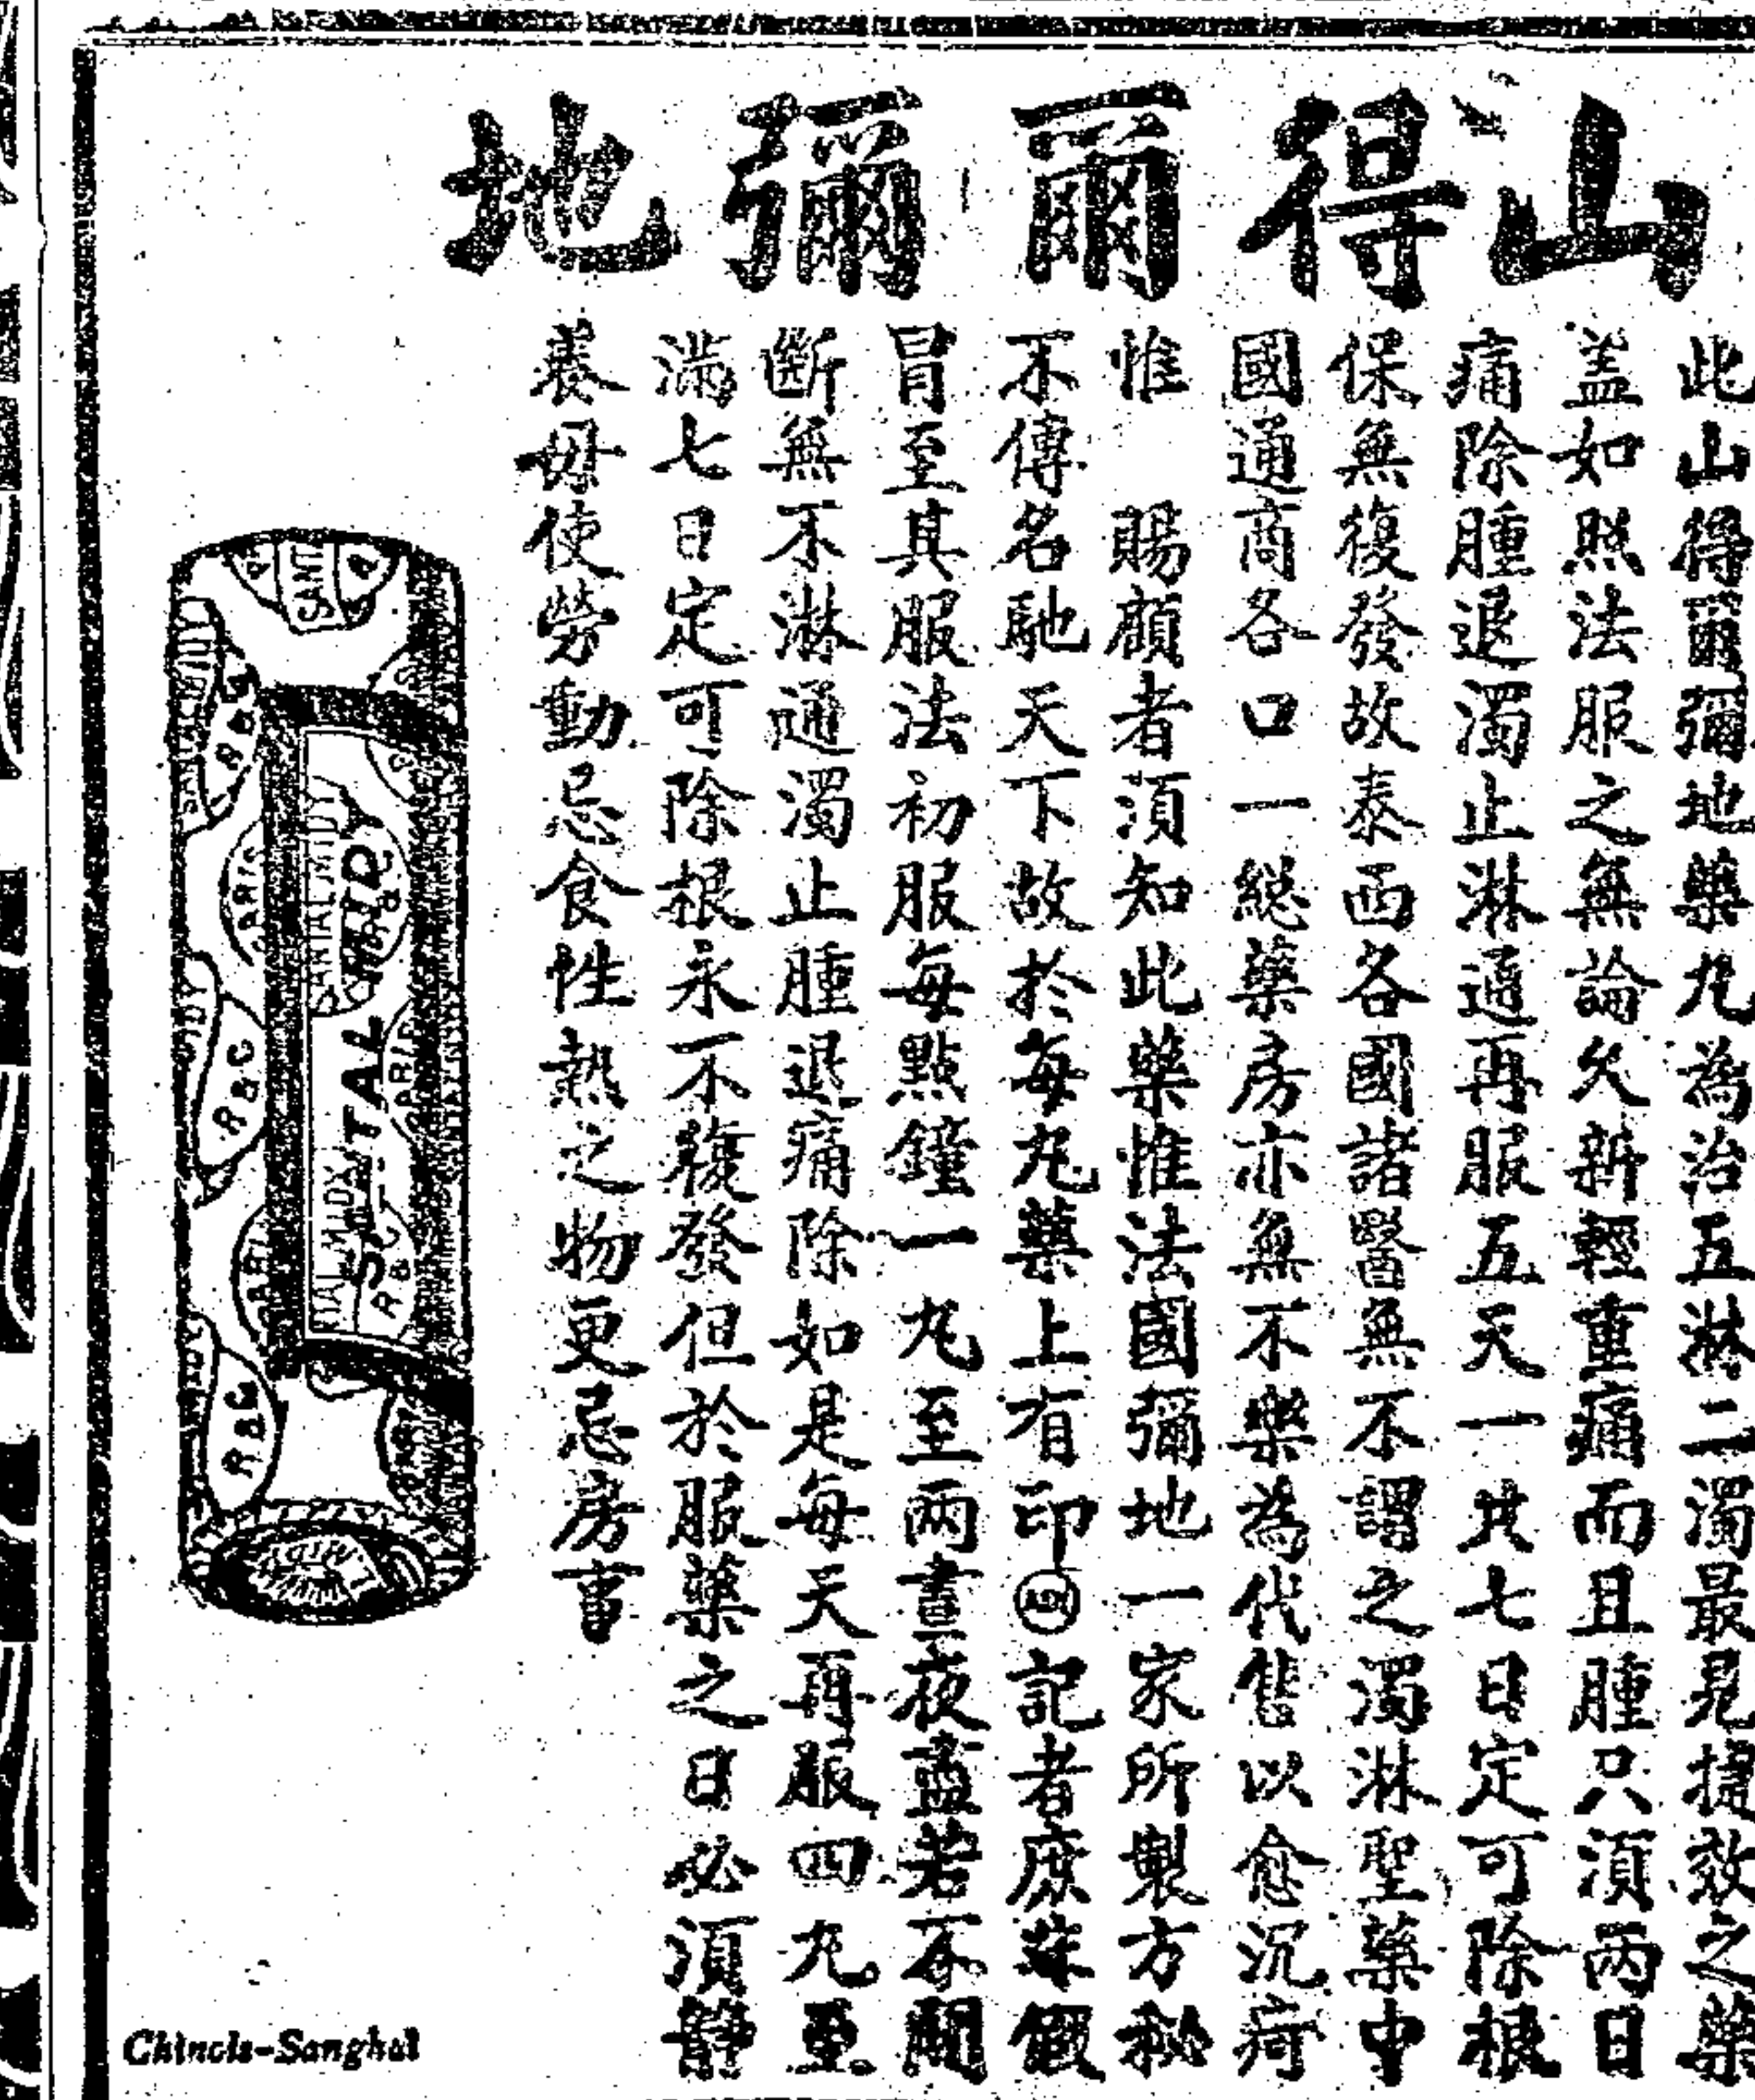 山得爾彌地
此山得爾彌地藥丸為治五淋二濁最見捷效之藥
盖如照法服之無論久新輕重痛而且腫只須兩日
痛除腫退濁止淋通再服五天一共七日定可除根
保無復發故泰西各國諸醫無不謂之濁淋聖藥中
國通商各口一總藥房亦無不樂為代售以愈沉疴
惟 賜顧者須知此藥惟法國彌地一家所製方秘
不傳名馳天下故於每丸藥上有印記者庶非假
冒至其服法初服每點鐘一丸至兩晝夜盡若不間
斷無不淋通濁止腫退痛除如是每天再服四丸至
滿七日定可除根永不復發但於服藥之日必須靜
養毋使勞動忌食性熱之物更忌房事
SANTAL MIDY
R&C
R&C
R&C
SANTAL MIDY
Chinois-Sanghai